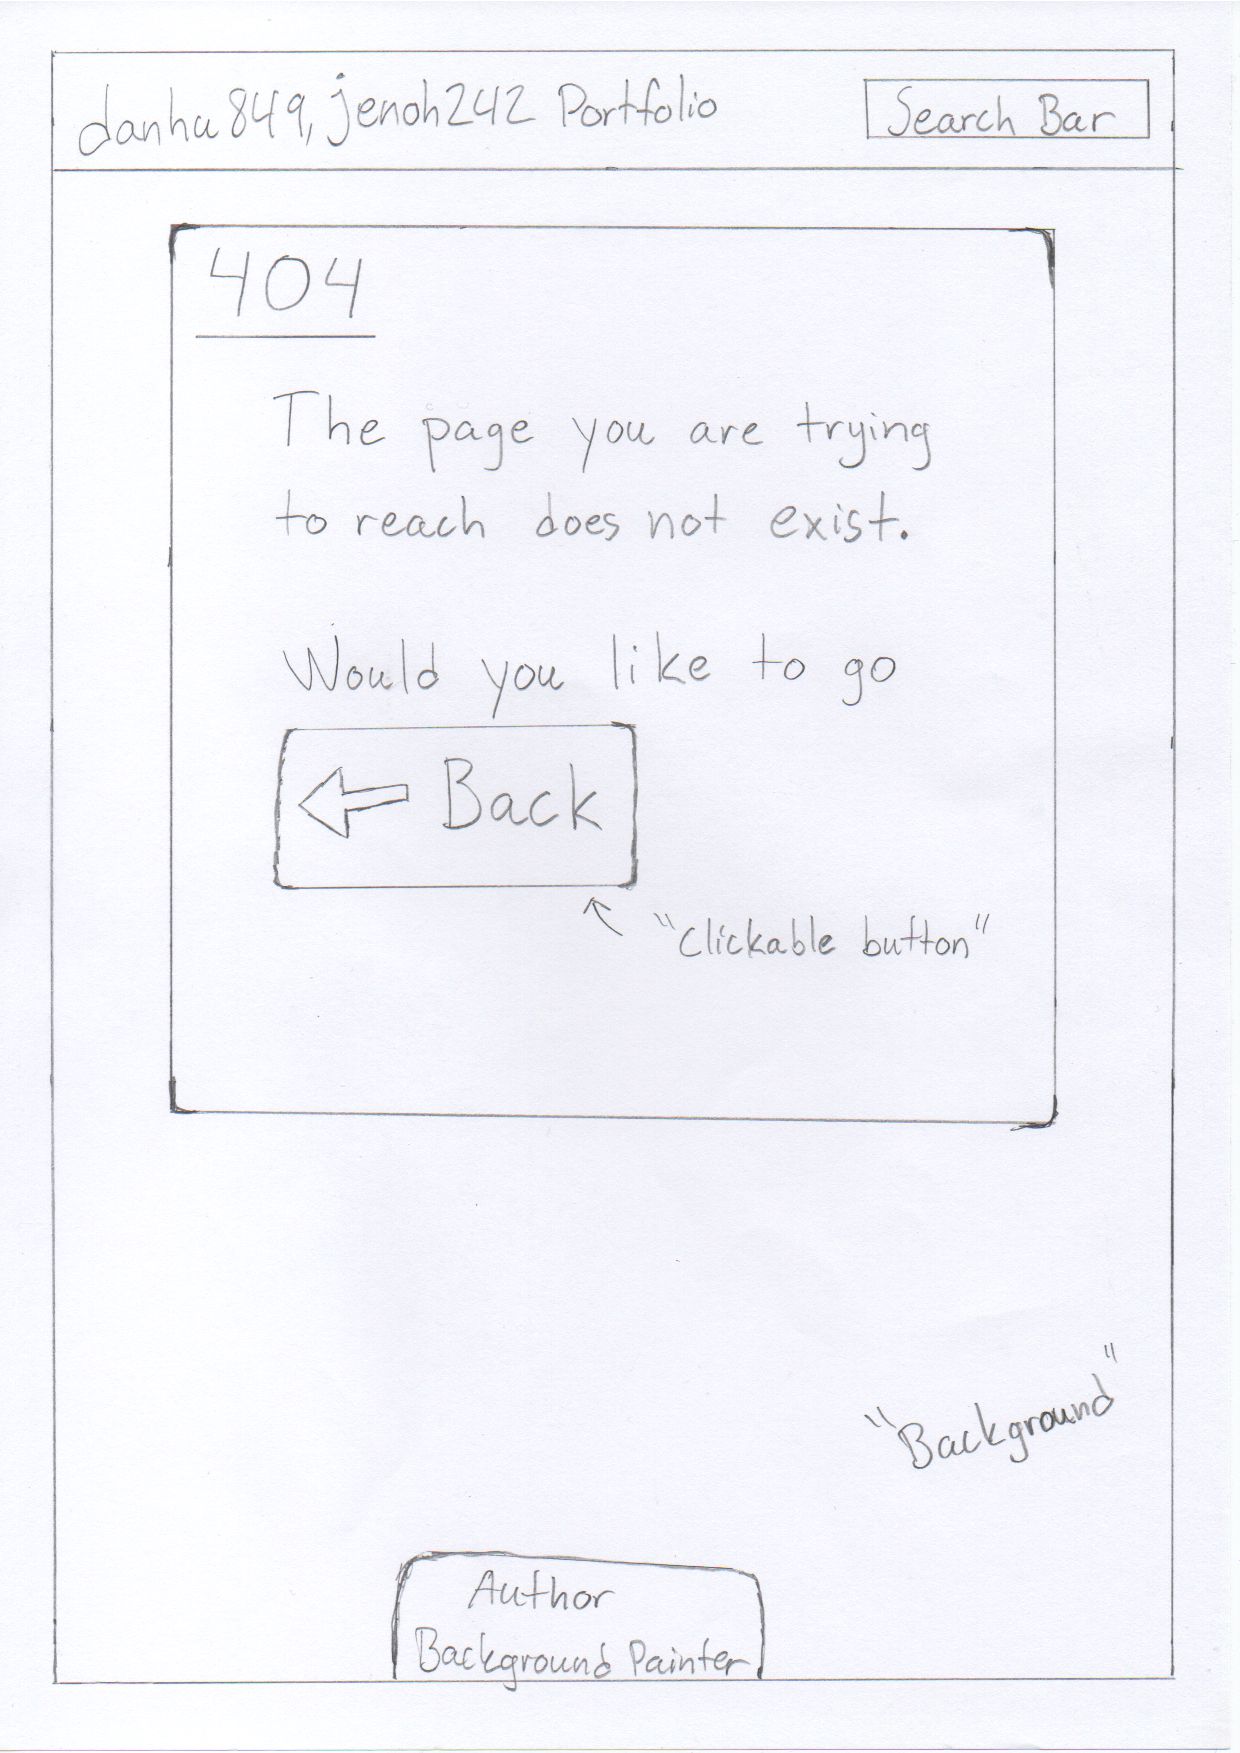 danhu849, jenoh242 Portfolio
Search Bar
404
The page you are trying
to reach does not exist.
Would you like to go
Back
"Clickable button"
"Background"
Author
Background Painter